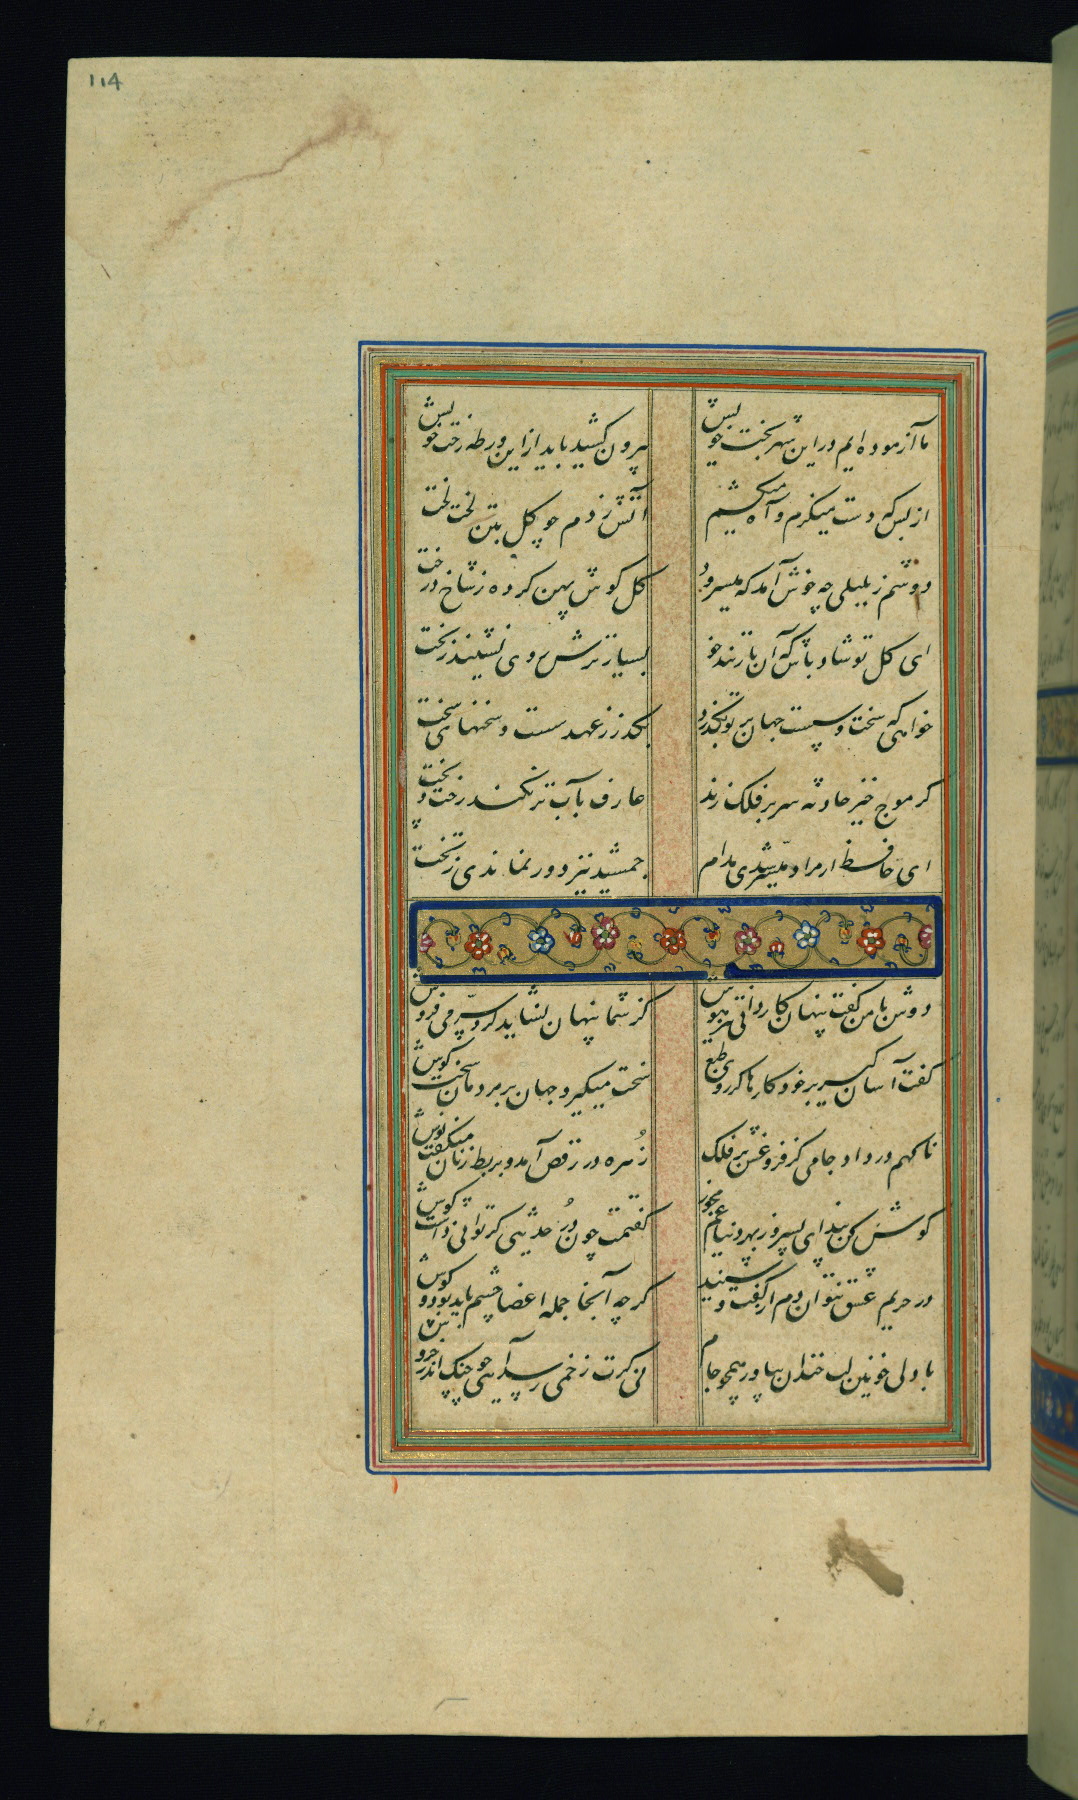 114
ما آزموده ایم درین شهر بخت خویش
بیرون کشید باید ازین ورطه رخت خویش
از بس که دست میگزم و آه میکشم
آتش زدم چو گل بتن لخت لخت خویش
دوشم ز بلبلی چه خوش آمد که میسرود
گل گوش پهن کرده ز شاخ درخت خویش
ای گل تو شاد باش که آن یار تندخو
بسیار ترش روی نشیند ز بخت خویش
خواهی که سخت و سست جهان بر تو بگذرد
بگذر ز عهد سست و سخنهای سخت خویش
گر موج خیز حادثه سر بر فلک زند
عارف بآب تر نکند رخت و پخت خویش
ای حافظ ار مراد میسر شدی مدام
جمشید نیز دور نماندی ز تخت خویش
دوش با من گفت پنهان کاردانی تیزهوش
کز شما پنهان نشاید کرد سر می فروش
گفت آسان گیر بر خود کارها کز روی طبع
سخت میگیرد جهان بر مردمان سخت کوش
ناگهم در داد جامی کز فروغش بر فلک
زهره در رقص آمد و بربط زنان میگفت نوش
گوش کن پند ای پسر وز بهر دنیا غم مخور
گفتمت چون در حدیثی گر توانی داشت گوش
در حریم عشق نتوان دم زد از گفت و شنید
گرچه آنجا جمله اعضا چشم باید بود و گوش
با دلی خونین لب خندان بیاور همچو جام
نی گرت زخمی رسد آیی چو چنگ اندر خروش